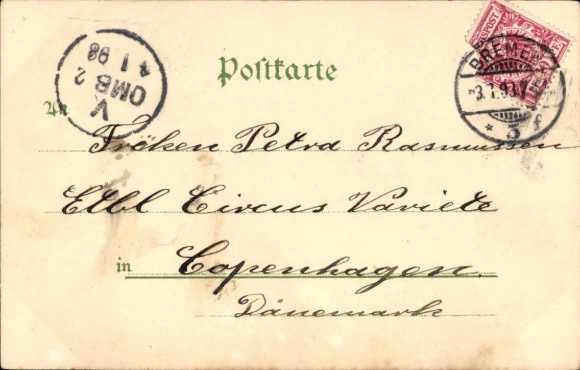 Postkarte
V
OMB 2
4 1 98
BREMEN
3.1.98
* 5 f
An
Fröken Petra Rasmussen
Etbl Circus Variete
in Copenhagen.
Dänemark